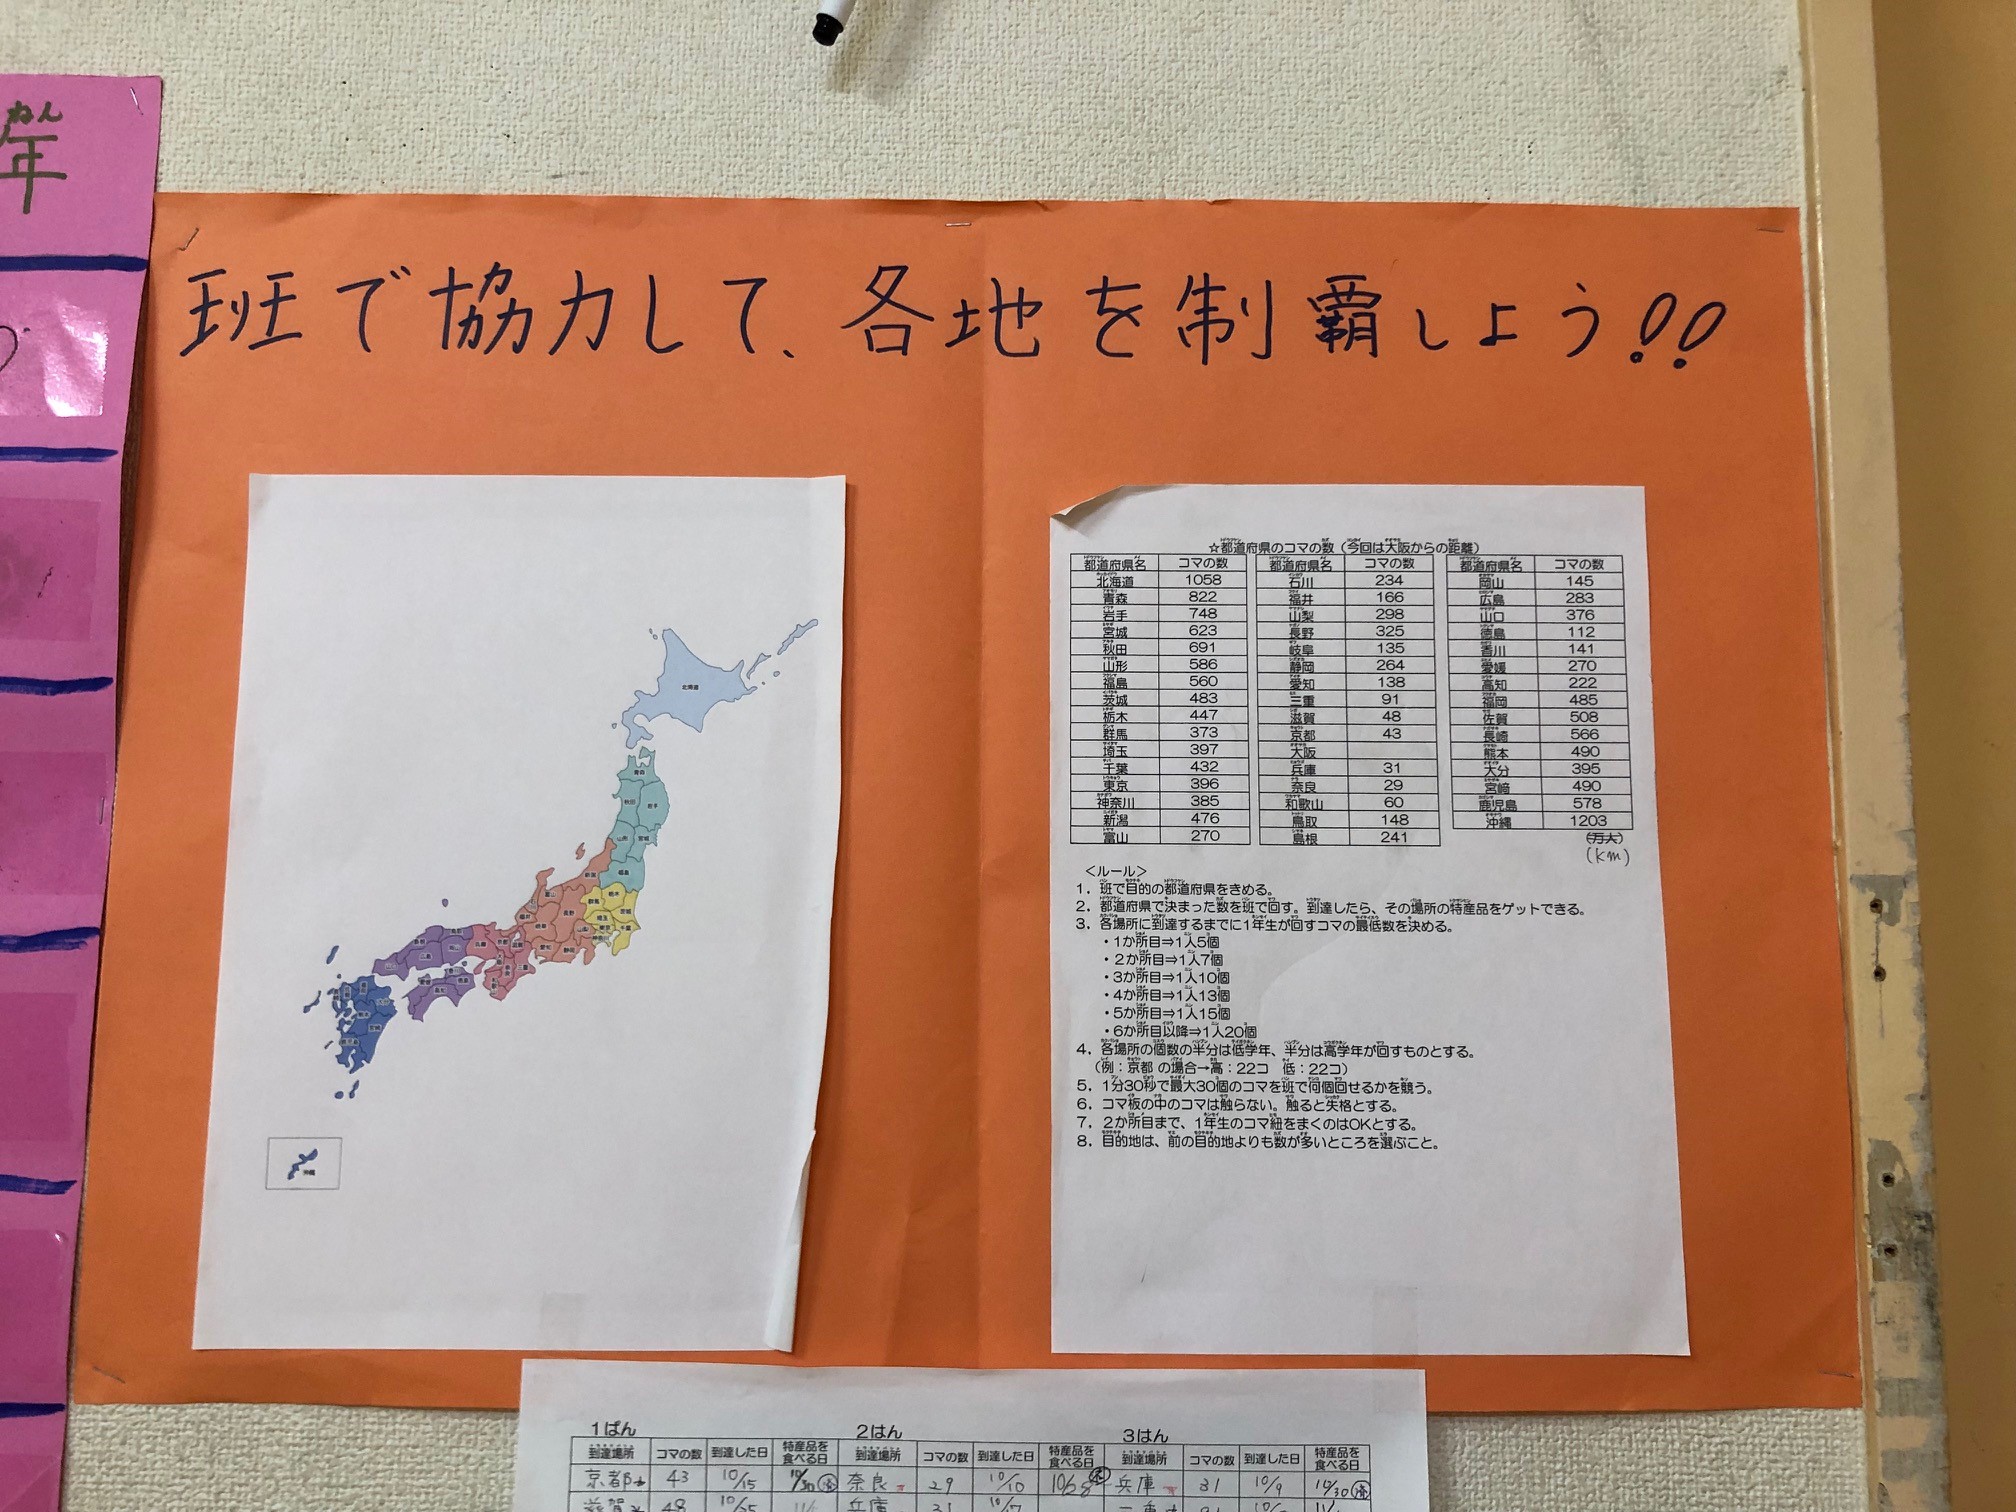 ねん
年
班で協力して、各地を制覇しよう!!
北海道
青森
秋田 岩手
山形 宮城
福島
新潟
☆都道府県のコマの数（今回は大阪からの距離）
都道府県名 コマの数 都道府県名 コマの数 都道府県名 コマの数
北海道 1058 石川 234 岡山 145
青森 822 福井 166 広島 283
岩手 748 山梨 298 山口 376
宮城 623 長野 325 徳島 112
秋田 691 岐阜 135 香川 141
山形 586 静岡 264 愛媛 270
福島 560 愛知 138 高知 222
茨城 483 三重 91 福岡 485
栃木 447 滋賀 48 佐賀 508
群馬 373 京都 43 長崎 566
埼玉 397 大阪 熊本 490
千葉 432 兵庫 31 大分 395
東京 396 奈良 29 宮崎 490
神奈川 385 和歌山 60 鹿児島 578
新潟 476 鳥取 148 沖縄 1203
富山 270 島根 241
(km)
＜ルール＞
1．班で目的の都道府県をきめる。
2．都道府県で決まった数を班で回す。到達したら、その場所の特産品をゲットできる。
3．各場所に到達するまでに1年生が回すコマの最低数を決める。
・1か所目⇒1人5個
・2か所目⇒1人7個
・3か所目⇒1人10個
・4か所目⇒1人13個
・5か所目⇒1人15個
・6か所目以降⇒1人20個
4．各場所の個数の半分は低学年、半分は高学年が回すものとする。
（例：京都 の場合→高：22コ 低：22コ）
5．1分30秒で最大30個のコマを班で何個回せるかを競う。
6．コマ板の中のコマは触らない。触ると失格とする。
7．2か所目まで、1年生のコマ紐をまくのはOKとする。
8．目的地は、前の目的地よりも数が多いところを選ぶこと。
沖縄
1ぱん 2はん 3はん
到達場所 コマの数 到達した日 特産品を食べる日 到達場所 コマの数 到達した日 特産品を食べる日 到達場所 コマの数 到達した日 特産品を食べる日
京都 43 10/15 10/30 奈良 29 10/10 兵庫 31 10/9 10/30
滋賀 48 10/25 兵庫 31 10/17